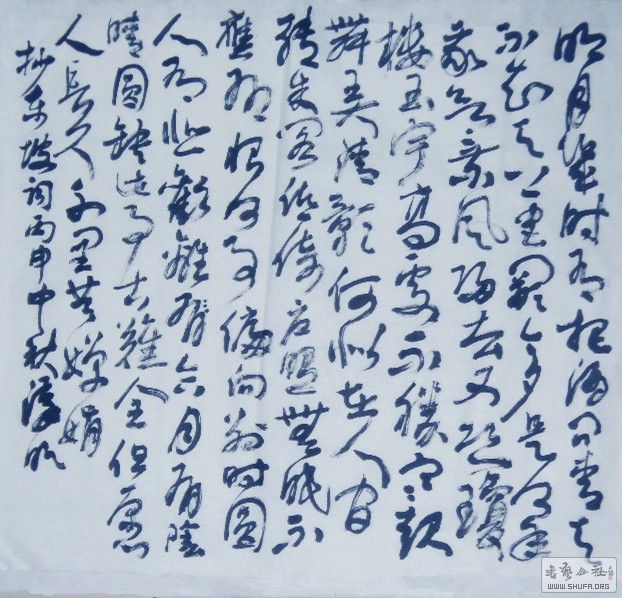 明月幾时有把酒问青天
不知天上宫阙今夕是何年
我欲乘风归去又恐瓊
楼玉宇高处不勝寒起
舞弄清影何似在人间
转朱阁低绮户照無眠不
應有恨何事偏向别时圆
人有悲歡離合月有陰
晴圆缺此事古難全但愿
人長久千里共嬋娟
抄东坡词丙申中秋
书艺公社
WWW.SHUFA.ORG